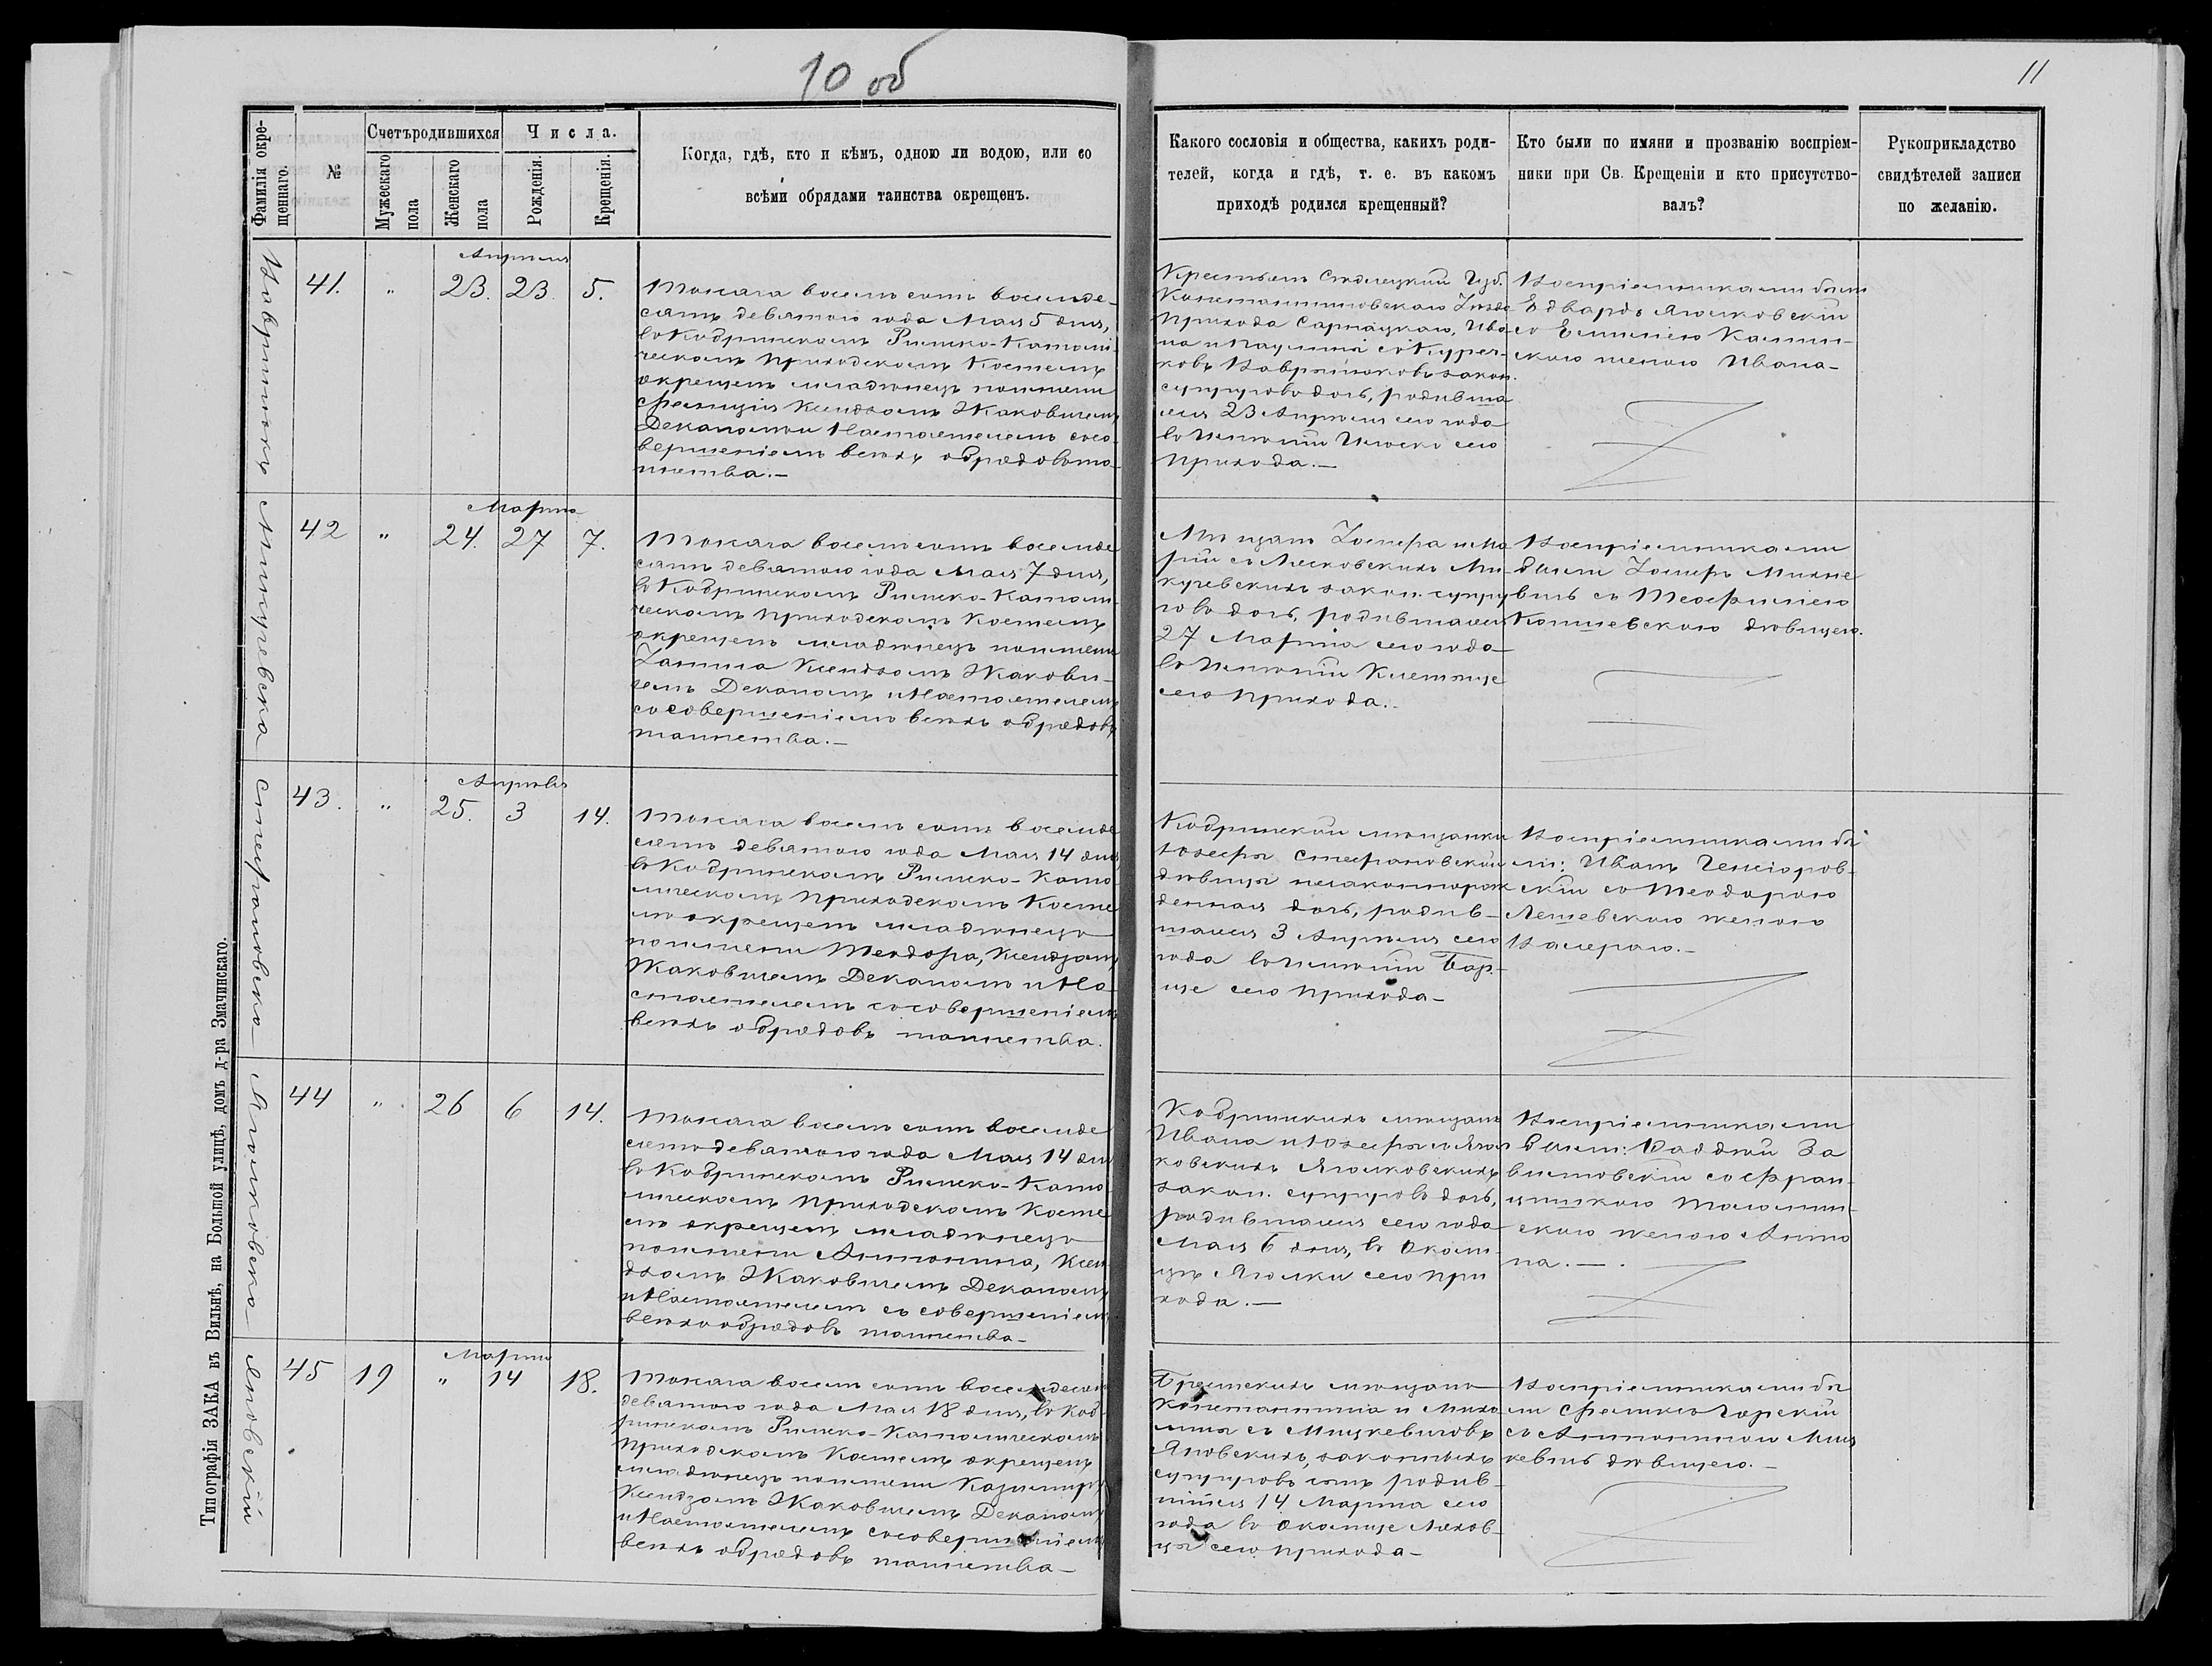 10 об
11
Фамилія окре-
щеннаго.
№
Счетъ родившихся
Мужескаго
пола
Женскаго
пола
Числа.
Рожденія.
Крещенія.
Когда, гдѣ, кто и кѣмъ, одною ли водою, или со
всѣми обрядами таинства окрещенъ.
Какого сословія и общества, какихъ роди-
телей, когда и гдѣ, т. е. въ какомъ
приходѣ родился крещенный?
Кто были по имяни и прозванію воспріем-
ники при Св. Крещеніи и кто присутство-
валъ?
Рукоприкладство
свидѣтелей записи
по желанію.
Апреля
41.
"
23.
23
5.
Тысяча восемь сотъ восемде-
сятъ девятого года Мая 5 дня,
въ Кобринскомъ Римско-Католи-
ческомъ Приходскомъ Костелѣ
окрещенъ младенецъ по имени
Фелиція Ксендзомъ Жаковичемъ
Деканомъ и Настоятелемъ со со-
вершеніемъ всѣхъ обрядовъ та-
инства.-
Крестьянъ Сѣдлецкой Губ.
Константиновскаго Уѣзда
Прихода Ива-
на и Паулины
законн.
супруговъ дочь, родивша
яся 23 Апреля сего года
въ имѣніи сего
прихода.-
Воспріемниками были
Едвардъ Яголковскій
съ Емиліею Камин-
скою женою Ивана-
Микучевска
Марта
42
"
24.
27
7.
Тысяча восемь сотъ восемде
сятъ девятого года Мая 7 дня,
въ Кобринскомъ Римско-Католи-
ческомъ Приходскомъ Костелѣ
окрещенъ младенецъ по имени
Ксендзомъ Жакови-
чемъ Деканомъ и Настоятелемъ
со совершеніемъ всѣхъ обрядовъ
таинства.-
Мѣщанъ и Ма
ріи съ Лесковскихъ Ми-
кучевскихъ закон. супру
говъ дочь, родившаяся
27 Марта сего года
въ имѣніи
сего прихода.-
Воспріемниками
были Михне
вичъ съ Теофилею
дѣвицею.
Стефановско
Апрѣля
43.
"
25.
3
14.
Тысяча восемь сотъ восемде
сятъ девятого года Мая 14 дня
въ Кобринскомъ Римско-Като
лическомъ Приходскомъ Косте
лѣ окрещенъ младенецъ
по имени Теодора, Ксендзомъ
Жаковичемъ Деканомъ и На-
стоятелемъ со совершеніемъ
всѣхъ обрядовъ таинства.
Кобринской мѣщанки
Юзефы Стефановской
дѣвицы незаконнорож
денная дочь, родив-
шаяся 3 Апреля сего
года въ имѣніи
сего прихода-
Воспріемниками бы
ли: Иванъ
скій съ Теодорою
Лешевскою женою
Валерого.-
Яголковско
44
"
26
6
14.
Тысяча восемь сотъ восемде
сятъ девятого года Мая 14 дня
въ Кобринскомъ Римско-Като
лическомъ Приходскомъ Косте
лѣ окрещенъ младенецъ
по имени Антонина, Ксен
дзомъ Жаковичемъ Деканомъ
и Настоятелемъ съ совершеніемъ
всѣхъ обрядовъ таинства-
Кобринскихъ мѣщанъ
Ивана и Юзефы съ Ягол
ковскихъ Яголковскихъ
закон. супруговъ дочь,
родившаяся сего года
Мая 6 дня, въ Околи-
цѣ Яголки сего при
хода.-
Воспріемниками
были: Фаддей За
вистовскій со Фран-
цишкою
скою женою Анто
на.-
Яновскій
Марта
45
19
"
14
18.
Тысяча восемь сотъ восемдесятъ
девятого года Мая 18 дня, въ Коб-
ринскомъ Римско-Католическомъ
Приходскомъ Костелѣ окрещенъ
младенецъ по имени Казимиръ
Ксендзомъ Жаковичемъ Деканомъ
и Настоятелемъ со совершеніемъ
всѣхъ обрядовъ таинства-
Брестскихъ мѣщанъ
Константина и
съ Мицкевичовъ
Яновскихъ, законныхъ
супруговъ сынъ родив-
шійся 14 Марта сего
года въ околице
сего прихода-
Воспріемниками бы
ли Феликсъ Горскій
съ Антониною Миц
кевичъ дѣвицею.-
Типографія ЗАКА въ Вильнѣ, на Большой улицѣ, домъ д-ра Змачинскаго.